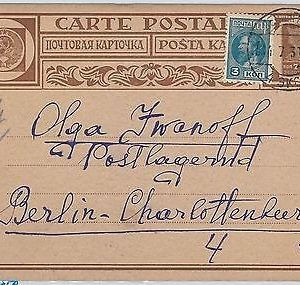 CARTE POSTAL
ПОЧТОВАЯ КАРТОЧКА POŠTA KA
ПОЧТА
3 КОП
7
Olga Iwanoff
Postlagernd
Berlin-Charlottenbur
4 4